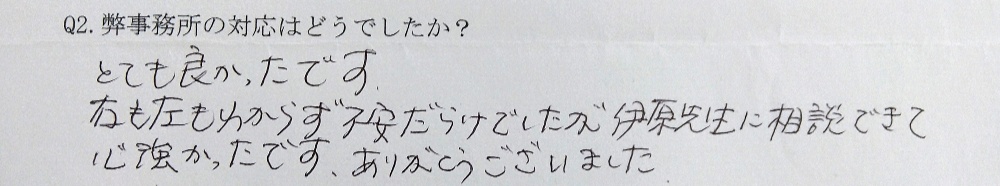 Q2. 弊事務所の対応はどうでしたか？
とても良かったです.
右も左もわからず不安だらけでしたが伊原先生に相談できて
心強かったです、ありがとうございました